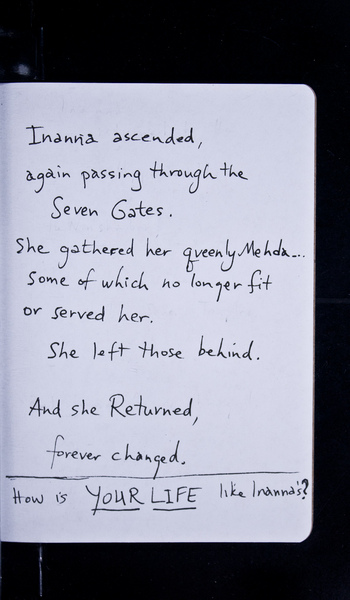 Inanna ascended,
again passing through the
Seven Gates.
She gathered her queenly Mehda...
some of which no longer fit
or served her.
She left those behind.
And she Returned,
forever changed.
How is YOUR LIFE like Inanna's?